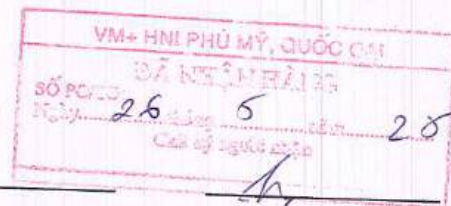 VM+ HNI PHÚ MỸ, QUỐC OAI
ĐÃ NHẬN HÀNG
SỐ PO/
Ngày 26 tháng 5 năm 25
Chữ ký người nhận